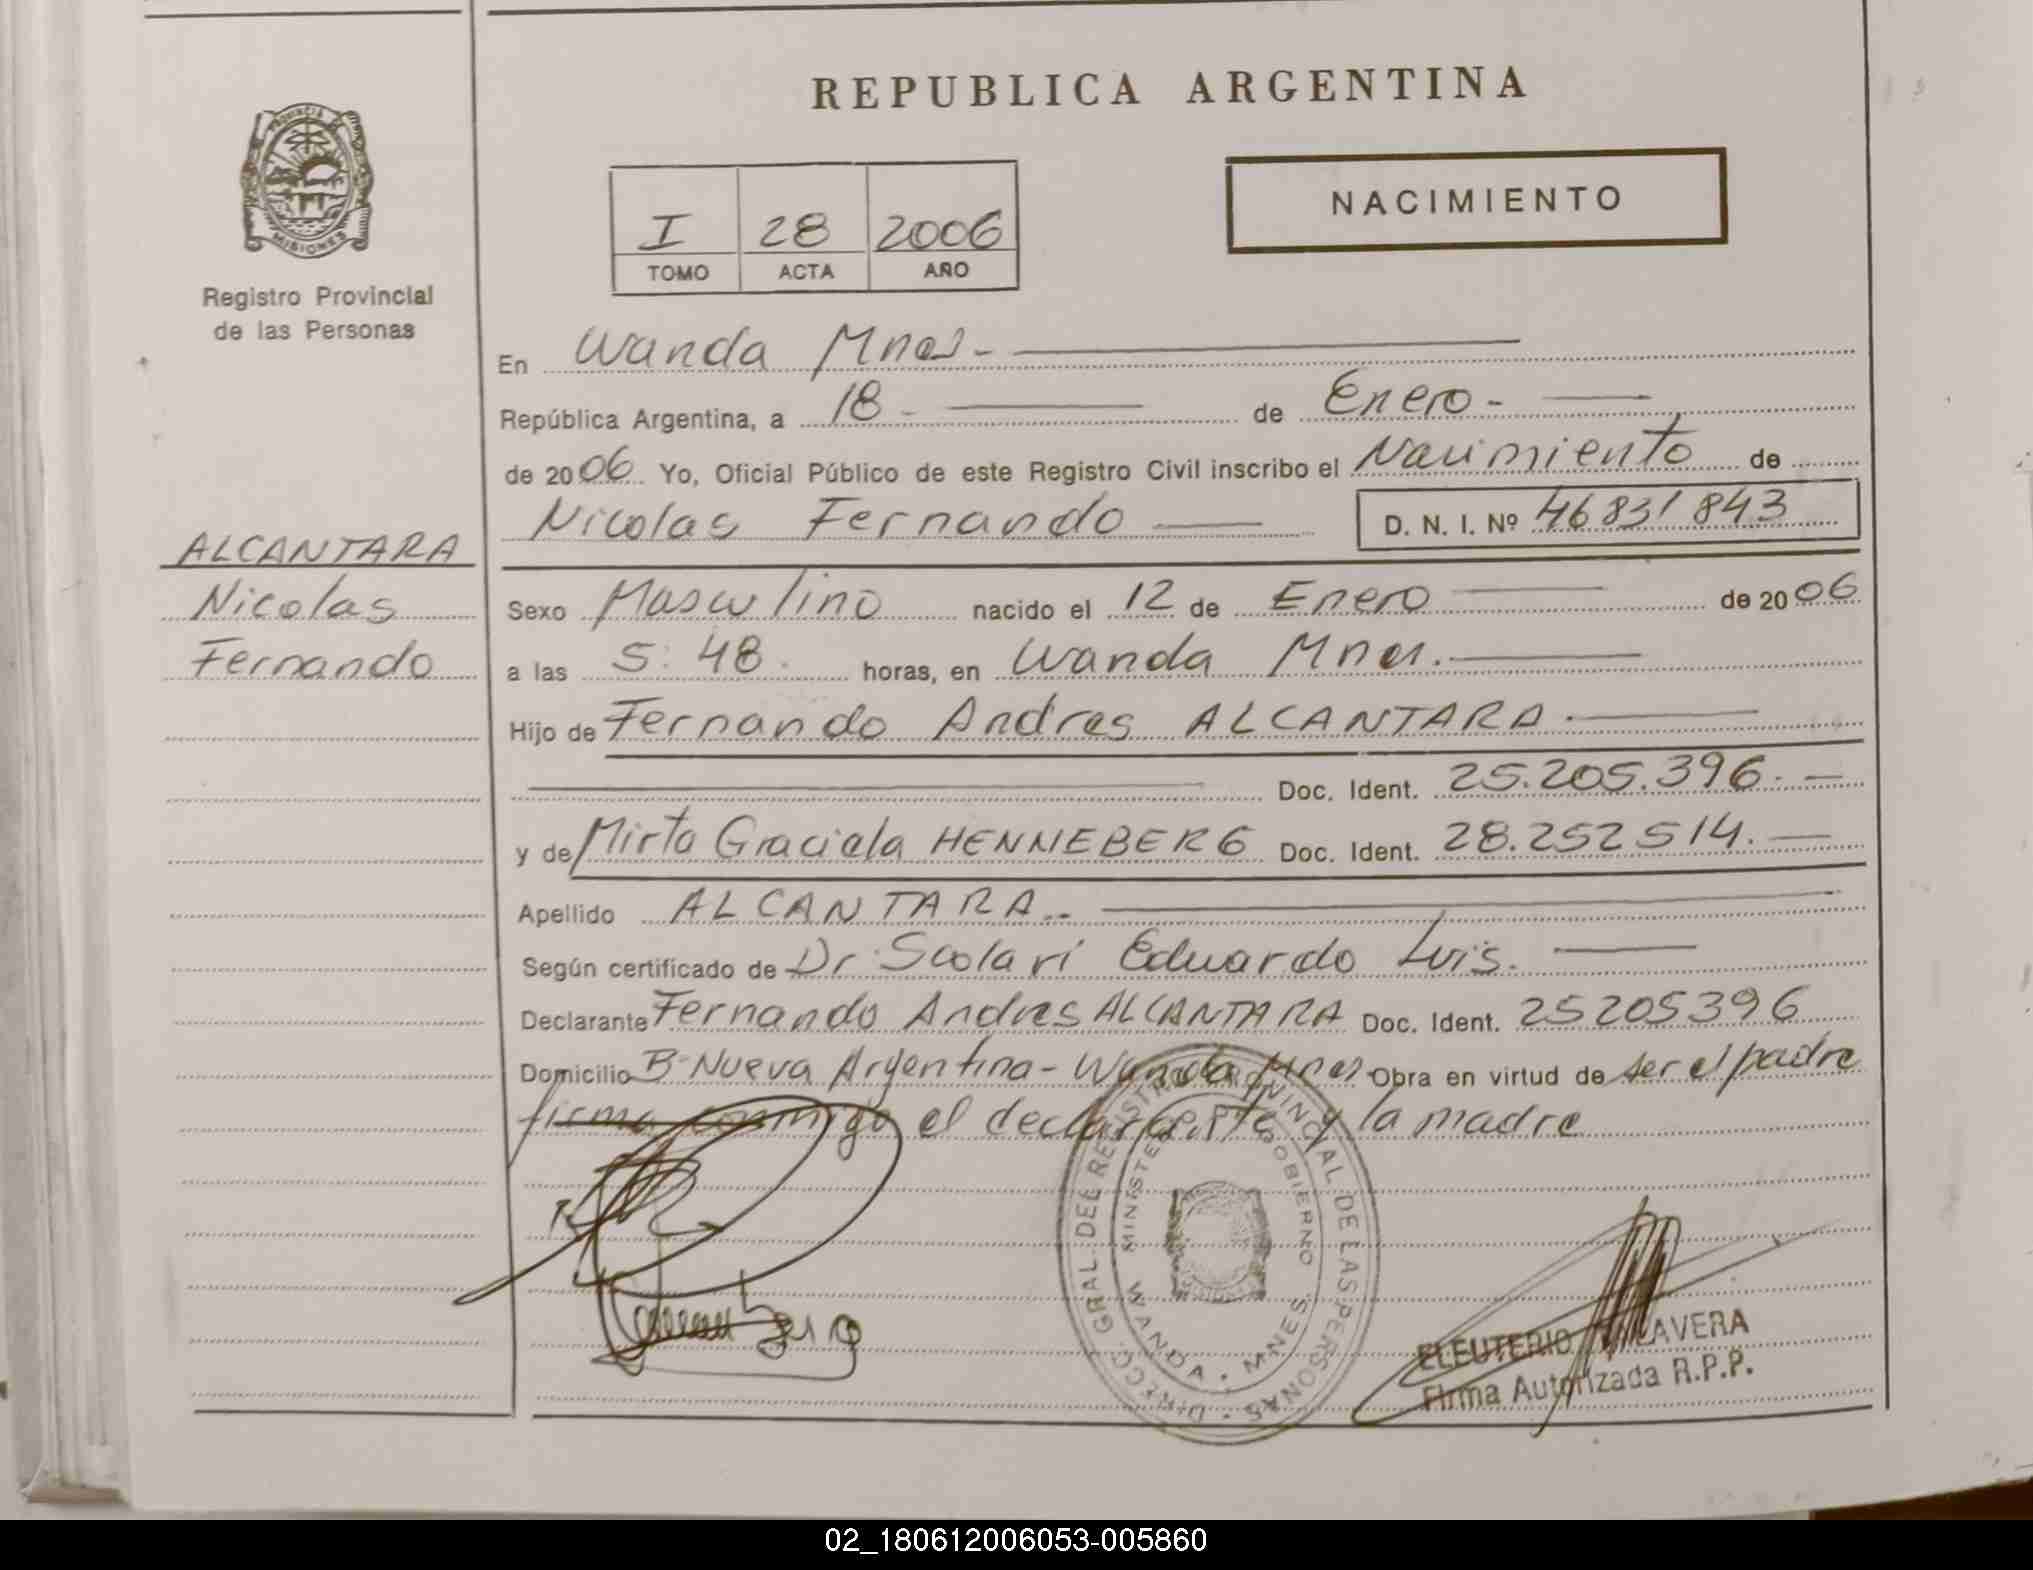 REPUBLICA ARGENTINA
PROVINCIA DE MISIONES
Registro Provincial
de las Personas
I 28 2006
TOMO ACTA AÑO
NACIMIENTO
En Wanda Mnes-
República Argentina, a 18 - de Enero -
de 2006 Yo, Oficial Público de este Registro Civil inscribo el Nacimiento de
Nicolas Fernando D. N. I. Nº 46831843
ALCANTARA
Nicolas
Fernando
Sexo Masculino nacido el 12 de Enero de 2006
a las 5:48. horas, en Wanda Mnes.
Hijo de Fernando Andres ALCANTARA.
Doc. Ident. 25.205.396.-
y de Mirta Graciela HENNEBERG Doc. Ident. 28.252514.-
Apellido ALCANTARA..
Según certificado de Dr Scolari Eduardo Luis.
Declarante Fernando Andres ALCANTARA Doc. Ident. 25205396
Domicilio Bº Nueva Argentina - Wanda Mnes Obra en virtud de ser el padre
firma conmigo el declarante y la madre
DIRECC. GRAL DEL REGISTRO PROVINCIAL DE LAS PERSONAS
MINISTERIO DE GOBIERNO
WANDA - MNES.
ELEUTERIO TALAVERA
Firma Autorizada R.P.P.
02_180612006053-005860